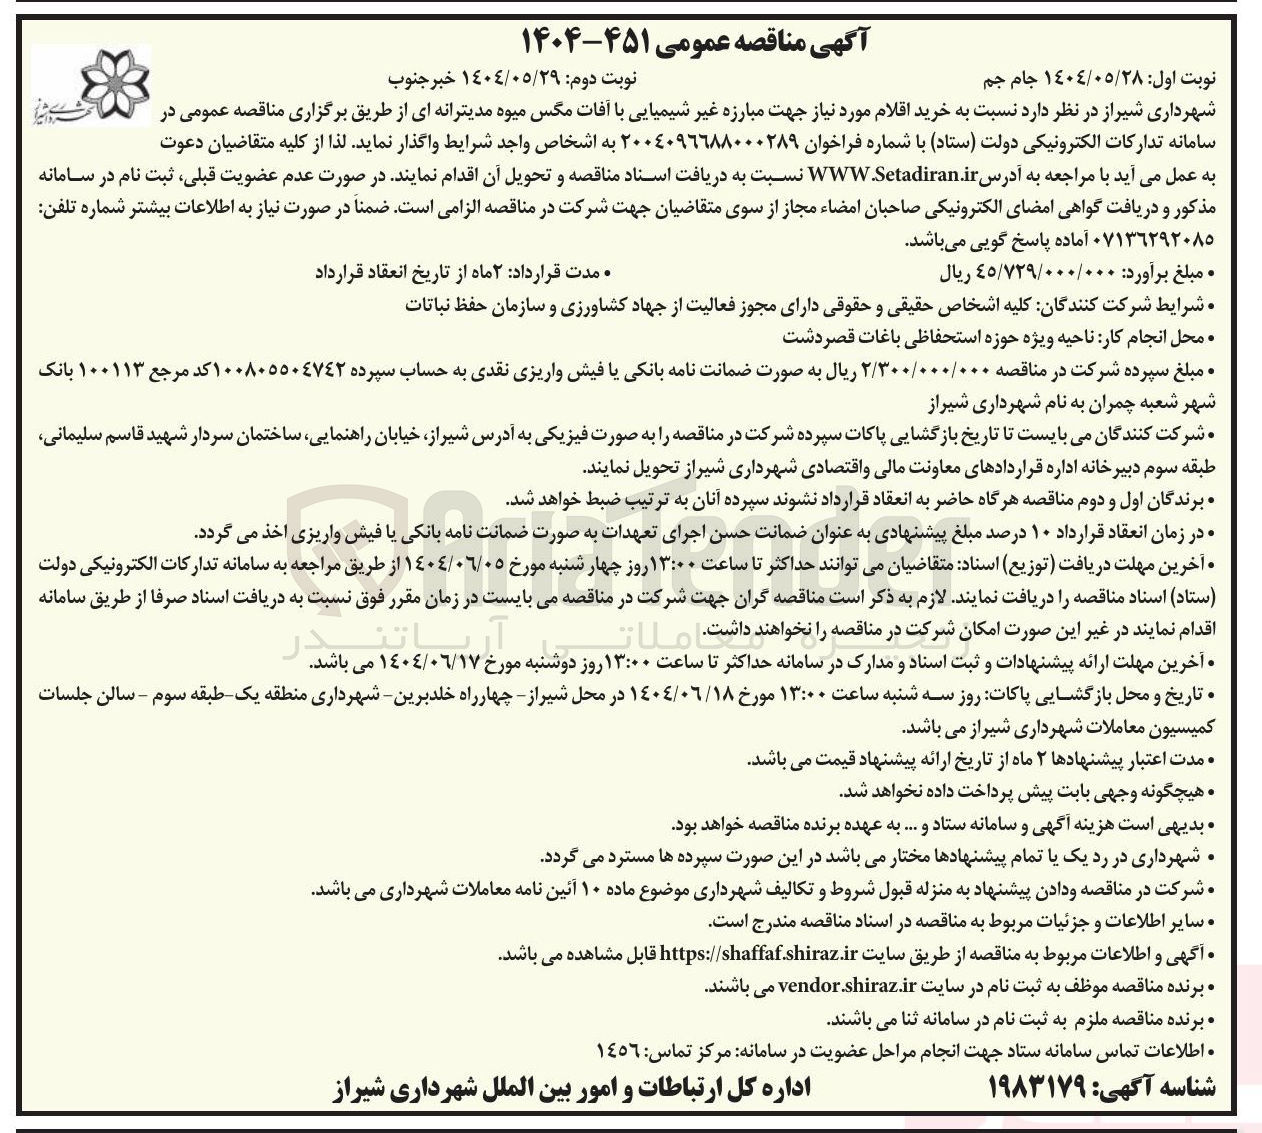 آگهی مناقصه عمومی ۴۵۱-۱۴۰۴
نوبت اول: ۱۴۰۴/۰۵/۲۸ جام جم نوبت دوم: ۱۴۰۴/۰۵/۲۹ خبرجنوب
شهرداری شیراز
شهرداری شیراز در نظر دارد نسبت به خرید اقلام مورد نیاز جهت مبارزه غیر شیمیایی با آفات مگس میوه مدیترانه ای از طریق برگزاری مناقصه عمومی در
سامانه تدارکات الکترونیکی دولت (ستاد) با شماره فراخوان ۲۰۰۴۰۹۶۶۸۸۰۰۰۲۸۹ به اشخاص واجد شرایط واگذار نماید. لذا از کلیه متقاضیان دعوت
به عمل می آید با مراجعه به آدرس WWW.Setadiran.ir نسبت به دریافت اسناد مناقصه و تحویل آن اقدام نمایند. در صورت عدم عضویت قبلی، ثبت نام در سامانه
مذکور و دریافت گواهی امضای الکترونیکی صاحبان امضاء مجاز از سوی متقاضیان جهت شرکت در مناقصه الزامی است. ضمناً در صورت نیاز به اطلاعات بیشتر شماره تلفن:
۰۷۱۳۶۲۹۲۰۸۵ آماده پاسخ گویی می‌باشد.
• مبلغ برآورد: ۴۵/۷۲۹/۰۰۰/۰۰۰ ریال • مدت قرارداد: ۲ماه از تاریخ انعقاد قرارداد
• شرایط شرکت کنندگان: کلیه اشخاص حقیقی و حقوقی دارای مجوز فعالیت از جهاد کشاورزی و سازمان حفظ نباتات
• محل انجام کار: ناحیه ویژه حوزه استحفاظی باغات قصردشت
• مبلغ سپرده شرکت در مناقصه ۲/۳۰۰/۰۰۰/۰۰۰ ریال به صورت ضمانت نامه بانکی یا فیش واریزی نقدی به حساب سپرده ۱۰۰۸۰۵۵۰۴۷۴۲کد مرجع ۱۰۰۱۱۳ بانک
شهر شعبه چمران به نام شهرداری شیراز
• شرکت کنندگان می بایست تا تاریخ بازگشایی پاکات سپرده شرکت در مناقصه را به صورت فیزیکی به آدرس شیراز، خیابان راهنمایی، ساختمان سردار شهید قاسم سلیمانی،
طبقه سوم دبیرخانه اداره قراردادهای معاونت مالی واقتصادی شهرداری شیراز تحویل نمایند.
• برندگان اول و دوم مناقصه هرگاه حاضر به انعقاد قرارداد نشوند سپرده آنان به ترتیب ضبط خواهد شد.
AriaTender
• در زمان انعقاد قرارداد ۱۰ درصد مبلغ پیشنهادی به عنوان ضمانت حسن اجرای تعهدات به صورت ضمانت نامه بانکی یا فیش واریزی اخذ می گردد.
• آخرین مهلت دریافت (توزیع) اسناد: متقاضیان می توانند حداکثر تا ساعت ۱۳:۰۰روز چهار شنبه مورخ ۱۴۰۴/۰۶/۰۵ از طریق مراجعه به سامانه تدارکات الکترونیکی دولت
(ستاد) اسناد مناقصه را دریافت نمایند. لازم به ذکر است مناقصه گران جهت شرکت در مناقصه می بایست در زمان مقرر فوق نسبت به دریافت اسناد صرفا از طریق سامانه
اقدام نمایند در غیر این صورت امکان شرکت در مناقصه را نخواهند داشت.
زنجیره معاملاتی آریاتندر
• آخرین مهلت ارائه پیشنهادات و ثبت اسناد و مدارک در سامانه حداکثر تا ساعت ۱۳:۰۰روز دوشنبه مورخ ۱۴۰۴/۰۶/۱۷ می باشد.
• تاریخ و محل بازگشایی پاکات: روز سه شنبه ساعت ۱۳:۰۰ مورخ ۱۴۰۴/۰۶/۱۸ در محل شیراز- چهارراه خلدبرین- شهرداری منطقه یک-طبقه سوم - سالن جلسات
کمیسیون معاملات شهرداری شیراز می باشد.
• مدت اعتبار پیشنهادها ۲ ماه از تاریخ ارائه پیشنهاد قیمت می باشد.
• هیچگونه وجهی بابت پیش پرداخت داده نخواهد شد.
• بدیهی است هزینه آگهی و سامانه ستاد و ... به عهده برنده مناقصه خواهد بود.
• شهرداری در رد یک یا تمام پیشنهادها مختار می باشد در این صورت سپرده ها مسترد می گردد.
• شرکت در مناقصه ودادن پیشنهاد به منزله قبول شروط و تکالیف شهرداری موضوع ماده ۱۰ آئین نامه معاملات شهرداری می باشد.
• سایر اطلاعات و جزئیات مربوط به مناقصه در اسناد مناقصه مندرج است.
• آگهی و اطلاعات مربوط به مناقصه از طریق سایت https://shaffaf.shiraz.ir قابل مشاهده می باشد.
• برنده مناقصه موظف به ثبت نام در سایت vendor.shiraz.ir می باشند.
• برنده مناقصه ملزم به ثبت نام در سامانه ثنا می باشند.
• اطلاعات تماس سامانه ستاد جهت انجام مراحل عضویت در سامانه: مرکز تماس: ۱۴۵۶
شناسه آگهی: ۱۹۸۳۱۷۹ اداره کل ارتباطات و امور بین الملل شهرداری شیراز